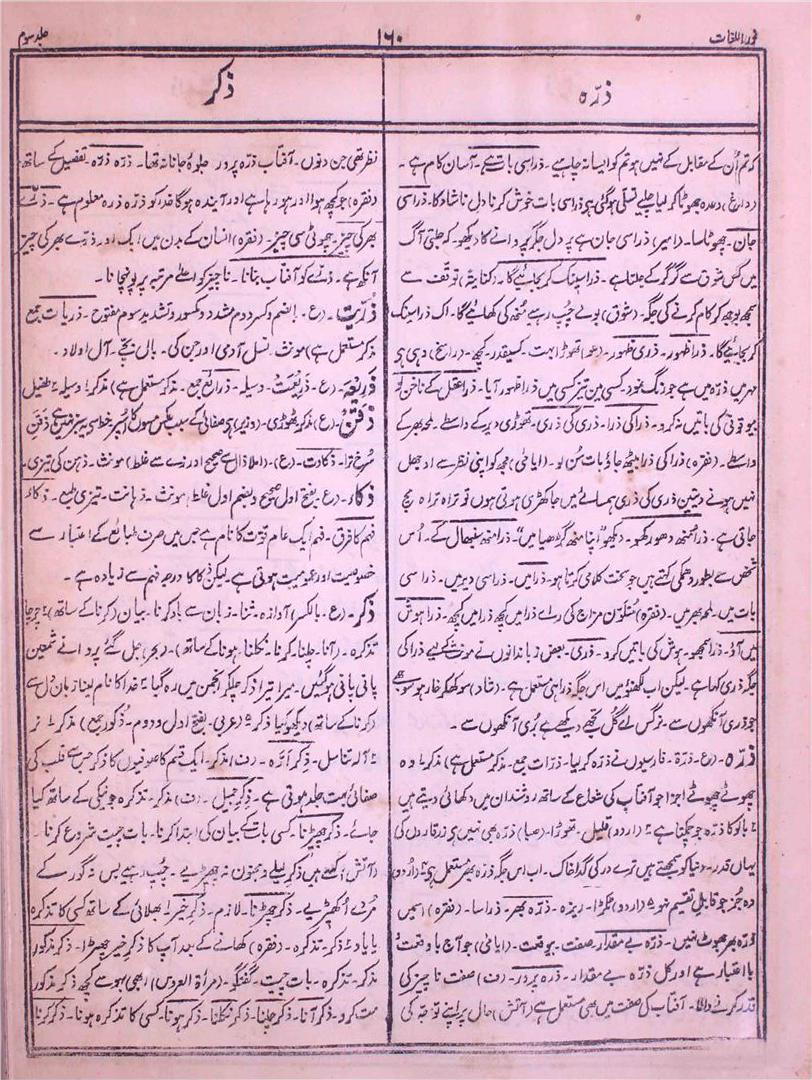 نور اللغات
۱۶۰
جلد سوم
ذرّہ
ذکر
کہ تم اُن کے مقابل کے نہیں ہو تم کو ایسا نہ چاہیے ۔ ذرا سی بات ہے۔ آسان کام ہے ۔
(داغ) وعدہ جھوٹا کر لیا چلیے تسلی ہو گئی ہے ذرا سی بات خوش کرنا دل ناشاد کا۔ ذرا سی
جان۔ چھوٹا سا۔ (امیر) ذرا سی جان ہے پر دل جگر پروانے کا دیکھو کہ جلتی آگ
میں کس شوق سے گر گر کے جلتا ہے۔ ذرا سینک کر بجائیے گا۔ (کنایۃً) توقف سے
سمجھ بوجھ کر کام کرنے کی جگہ۔ (شوق) بولے چُپ رہیے مُنھ کی کھائیے گا۔ اک ذرا سینک
کر بجائیے گا۔ ذرا ظہور۔ ذری ظہور۔ (عو) تھوڑا بہت۔ کسیقدر۔ کچھ۔ (راسخ) وہی ہی
مہر میں ذرّہ میں ہے جو رنگ نمود کسی میں تیز کسی میں ذرا ظہور آیا۔ ذرا عقل کے ناخن لو
بیوقوفی کی باتیں نہ کرو۔ ذرا کی ذرا۔ ذری کی ذری۔ تھوڑی دیر کے واسطے۔ لمحہ بھر کے
واسطے۔ (فقرہ) ذرا کی ذرا بیٹھ جاؤ بات سُن لو۔ (ایامیٰ) مجھ کو اپنی نظر سے اوجھل
نہیں ہونے دیتیں ذری کی ذری ہمسائے میں جا کھڑی ہوتی ہوں تو تراہ تراہ مچ
جاتی ہے۔ ذرا مُنھ دھو رکھو۔ دیکھو "اپنا منھ گڑھیا میں"۔ ذرا منھ سنبھال کے۔ اُس
شخص سے بطور دھمکی کہتے ہیں جو سخت کلامی کرتا ہو۔ ذرا میں۔ ذرا سی دیر میں۔ ذرا سی
بات میں۔ لمحہ بھر میں۔ (فقرہ) متلون مزاج کی رائے ذرا میں کچھ ذرا میں کچھ۔ ذرا ہوش
میں آؤ۔ ذرا سمجھو۔ ہوش کی باتیں کرو۔ ذری۔ بعض زباندانوں نے مونث کے لیے ذرا کی
جگہ ذری لکھا ہے۔ لیکن اب لکھنؤ میں اس جگہ ذرا ہی مستعمل ہے۔ (شاد) سوکھکر خار ہو سوجھے
جو ذری آنکھوں سے۔ نرگس اے گل تجھے دیکھے ہے بُری آنکھوں سے ۔
ذرّہ۔ (ع۔ ذرّۃ۔ فارسیوں نے ذرّہ کر لیا۔ ذرّات جمع۔ مذکر مستعمل ہے) مذکر۔ ۱ وہ
چھوٹے چھوٹے اجزا جو آفتاب کی شعاع کے ساتھ روشندان میں دکھائی دیتے ہیں
۲ بالو کا ذرّہ جو چمکتا ہے ۳ (اردو) قلیل۔ تھوڑا۔ (صبا) ذرّہ بھی نہیں ہے زرقاروں کی
یہاں قدر۔ دنیا کو سمجھتے ہیں ترے در کی گدا خاک۔ اب اس جگہ ذرّہ بھر مستعمل ہے ۴ (اردو)
وہ جُز جو قابل تقسیم نہو ۵ (اردو) ٹکڑا۔ ریزہ۔ ذرّہ بھر۔ ذرا سا۔ (فقرہ) اسمیں
ذرّہ بھر جھوٹ نہیں۔ ذرّہ بے مقدار۔ صفت۔ بیوقعت۔ (ایامیٰ) جو آج با وقعت
با اعتبار ہے اور کل ذرّہ بے مقدار۔ ذرّہ پرور۔ (ف) صفت ناچیز کی
قدر کرنے والا۔ آفتاب کی صفت میں بھی مستعمل ہے (آتش) حال پر اپنے توجہ کی
نظر تھی جن دنوں۔ آفتاب ذرّہ پرور جلوۂ جانانہ تھا۔ ذرّہ ذرّہ۔ تفصیل کے ساتھ
(فقرہ) جو کچھ ہوا اور ہو رہا ہے اور آیندہ ہوگا خدا کو ذرّہ ذرّہ معلوم ہے۔ ذرّے
بھر کی چیز۔ چھوٹی سی چیز۔ (فقرہ) انسان کے بدن میں ایک اور ذرّے بھر کی چیز
آنکھ ہے۔ ذرّے کو آفتاب بنانا۔ ناچیز کو اعلیٰ مرتبہ پر پہنچانا۔
ذُرّیّت۔ (ع۔ بالضم و کسر دوم مشدد و کسور و تشدید سوم مفتوح۔ ذریات جمع
مذکر مستعمل ہے) مونث۔ نسل آدمی اور جن کی۔ بال بچّے۔ آل اولاد۔
ذریعہ۔ (ع۔ ذریعت۔ وسیلہ۔ ذرائع جمع۔ مذکر مستعمل ہے) مذکر۔ ۱ وسیلہ ۲ طفیل
ذَقَن۔ (ع) مذکر ٹھوڑی۔ (وزیر) ہے صفائی کے سبب عکس ذقن
سُرخ ترا۔ ذکاوت۔ (ع)۔ (املا ذال سے صحیح اور زے سے غلط) مونث۔ ذہن کی تیزی۔
ذکاء۔ (ع) بفتح اول صحیح و بضم اول غلط) مونث۔ ذہانت۔ تیزی طبع۔ ذکاء
فہم کا فرق۔ فہم ایک عام قوت کا نام ہے جس میں صرف طبائع کے اعتبار سے
خصوصیت اور عمومیت ہوتی ہے لیکن ذکا کا درجہ فہم سے زیادہ ہے ۔
ذکر۔ (ع۔ بالکسر) آوازہ۔ ثنا۔ زبان سے یاد کرنا۔ بیان (کرنا کے ساتھ) ۲ چرچا
تذکرہ۔ (آنا۔ چلنا۔ کرنا۔ نکلنا۔ ہونا کے ساتھ)۔ (بحر) جل گئے پروانے شمعیں
پانی پانی ہو گئیں۔ میرا تیرا ذکر چلکر انجمن میں رہ گیا ۳ خدا کا نام لینا زبان دل سے
(کرنا کے ساتھ) دیکھو کیا ذکر ۴ (عربی۔ بفتح اول و دوم۔ ذکور جمع) مذکر۔ ۱ نر
۲ آلہ تناسل۔ ذکر ارّہ۔ (ف) مذکر۔ ایک قسم کا صوفیوں کا ذکر جس سے قلب کی
صفائی بہت جلد ہوتی ہے۔ ذکر جمیل۔ (ف) مذکر۔ تذکرہ جو نیکی کے ساتھ کیا
جائے۔ ذکر چھیڑنا۔ کسی بات کے بیان کی ابتدا کرنا۔ بات چیت شروع کرنا۔
(آتش) اگلے ہیں ذکر لیلے و مجنون نہ چھیڑیے۔ چپ رہیے بس نہ گور کے
مُردے اُکھیڑیے۔ ذکر چھڑنا۔ لازم۔ ذکر خیر۔ ۱ بھلائی کے ساتھ کسی کا تذکرہ
یا یاد ۲ ذکر۔ تذکرہ۔ (فقرہ) کھانے کے بعد آپ کا ذکر خیر چھیڑا۔ ذکر مذکور
مذکر۔ تذکرہ۔ بات چیت۔ گفتگو۔ (مرأۃ العروس) ابھی بہو سے کچھ ذکر مذکور
مت کرو۔ ذکر آنا۔ ذکر چلنا۔ ذکر نکلنا۔ ذکر ہونا۔ کسی کا تذکرہ ہونا۔ ذکر کرنا